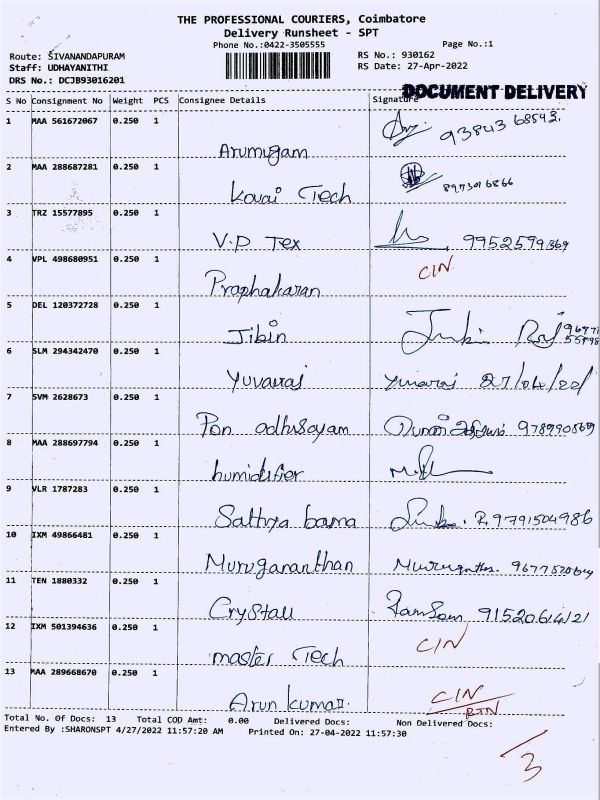 THE PROFESSIONAL COURIERS, Coimbatore
Delivery Runsheet - SPT
Phone No.:0422-3505555
Page No.:1
Route: SIVANANDAPURAM
Staff: UDHAYANITHI
DRS No.: DCJB93016201
RS No.: 930162
RS Date: 27-Apr-2022
DOCUMENT DELIVERY
S No Consignment No Weight PCS Consignee Details Signature
1 MAA 561672067 0.250 1
Arumugam 93843 68543.
2 MAA 288687281 0.250 1
Kovai Tech
3 TRZ 15577895 0.250 1
V.P Tex
4 VPL 498680951 0.250 1 CIN
Praphakaran
5 DEL 120372728 0.250 1
Jibin
6 SLM 294342470 0.250 1
Yuvaraj Yuvaraj 27/04/22/
7 SVM 2628673 0.250 1
Pon
8 MAA 288697794 0.250 1
humidifier
9 VLR 1787283 0.250 1
Sathya bama R. 9791504986
10 IXM 49866481 0.250 1
Murugananthan
11 TEN 1880332 0.250 1
Crystall
12 IXM 501394636 0.250 1 CIN
master Tech
13 MAA 289668670 0.250 1 CIN
Arun kumar RTN
Total No. Of Docs: 13 Total COD Amt: 0.00 Delivered Docs: Non Delivered Docs:
Entered By :SHARONSPT 4/27/2022 11:57:20 AM Printed On: 27-04-2022 11:57:30
/3